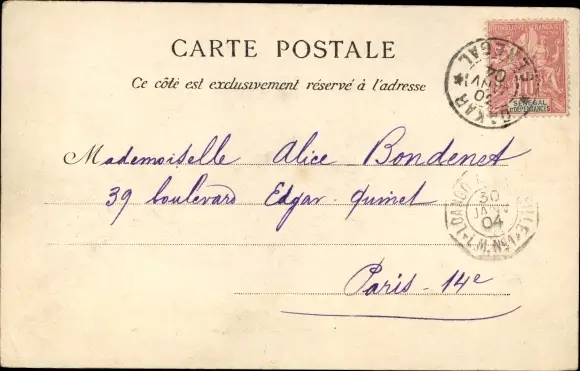 CARTE POSTALE
Ce côté est exclusivement réservé à l'adresse
RÉPUBLIQUE FRANÇAISE
10
SÉNÉGAL
ET DÉPENDANCES
DAKAR
SÉNÉGAL
Mademoiselle Alice Bondenet
39 boulevard Edgar-Quinet
Paris-14e
30
JANV
04